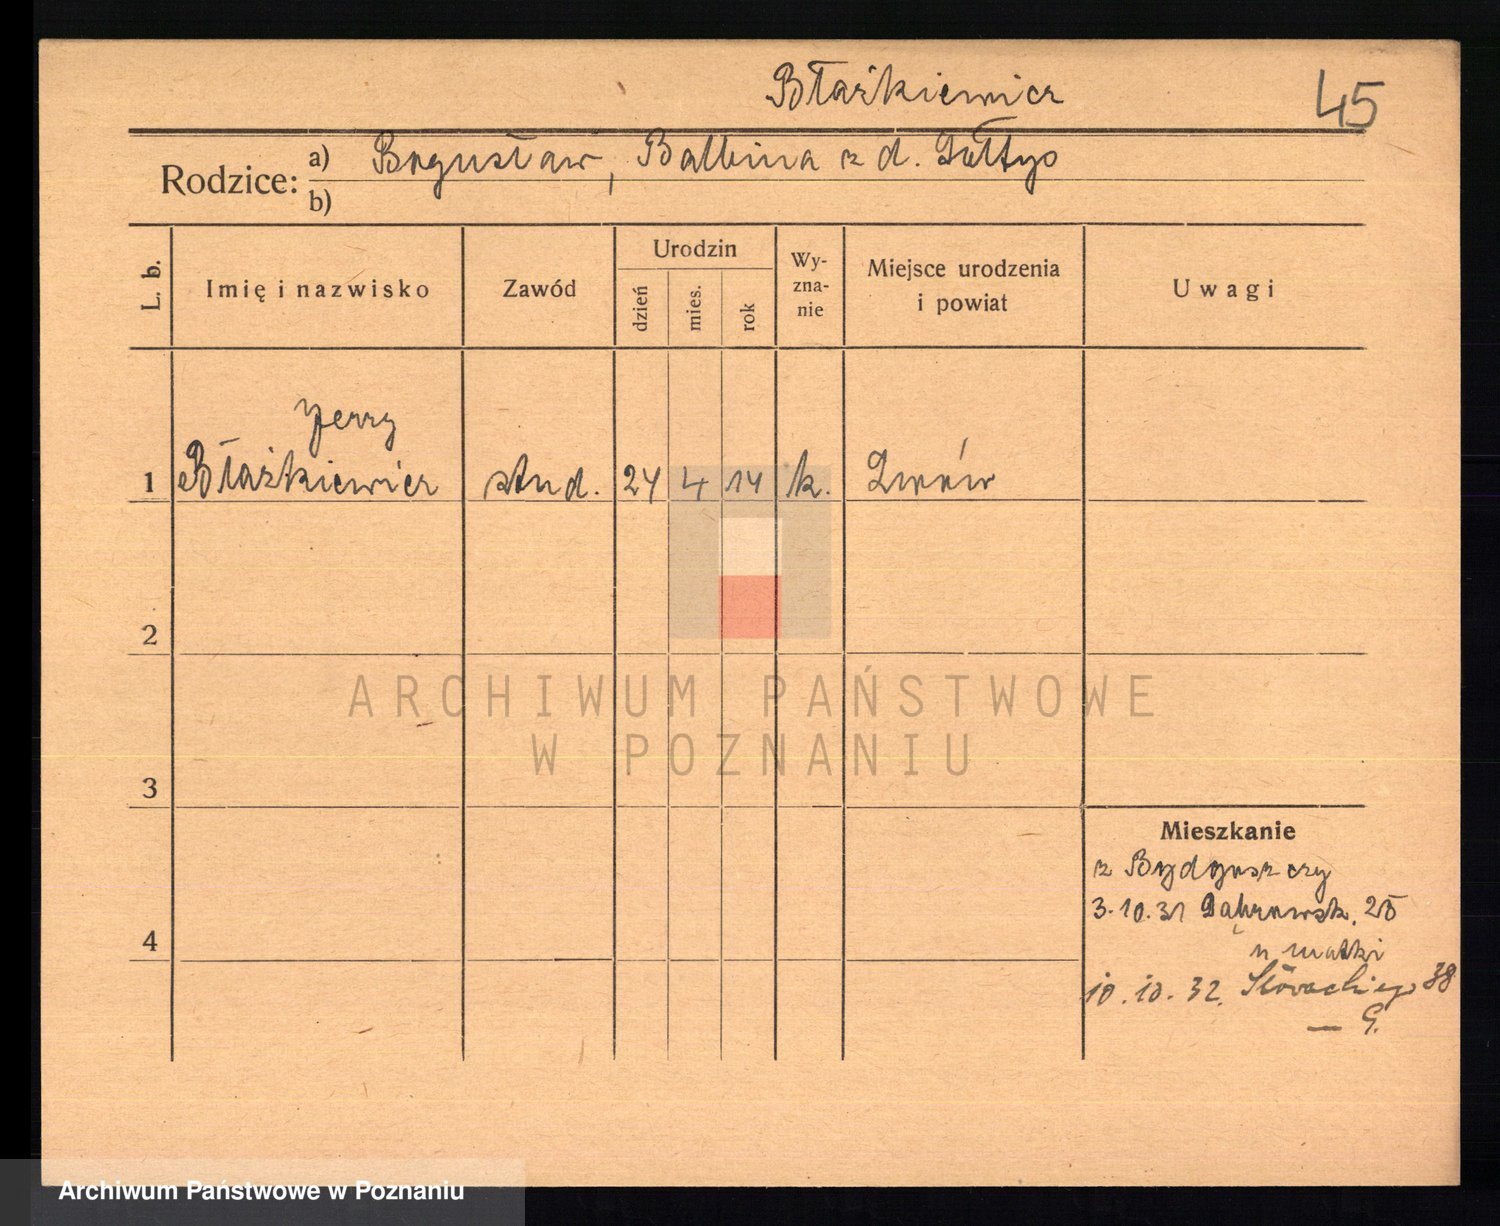 Błażkiewicz
45
Rodzice: a) Bogusław, Balbina z d. Sołtys
b)
L. b.
Imię i nazwisko
Zawód
Urodzin
dzień
mies.
rok
Wy-
zna-
nie
Miejsce urodzenia
i powiat
Uwagi
Jerzy
1 Błażkiewicz stud. 24 4 14 k. Lwów
2
3
4
Mieszkanie
z Bydgoszczy
3.10.31 Dąbrowsk. 25
u matki
10.10.32. Słowackiego 38
— G.
ARCHIWUM PAŃSTWOWE
W POZNANIU
Archiwum Państwowe w Poznaniu